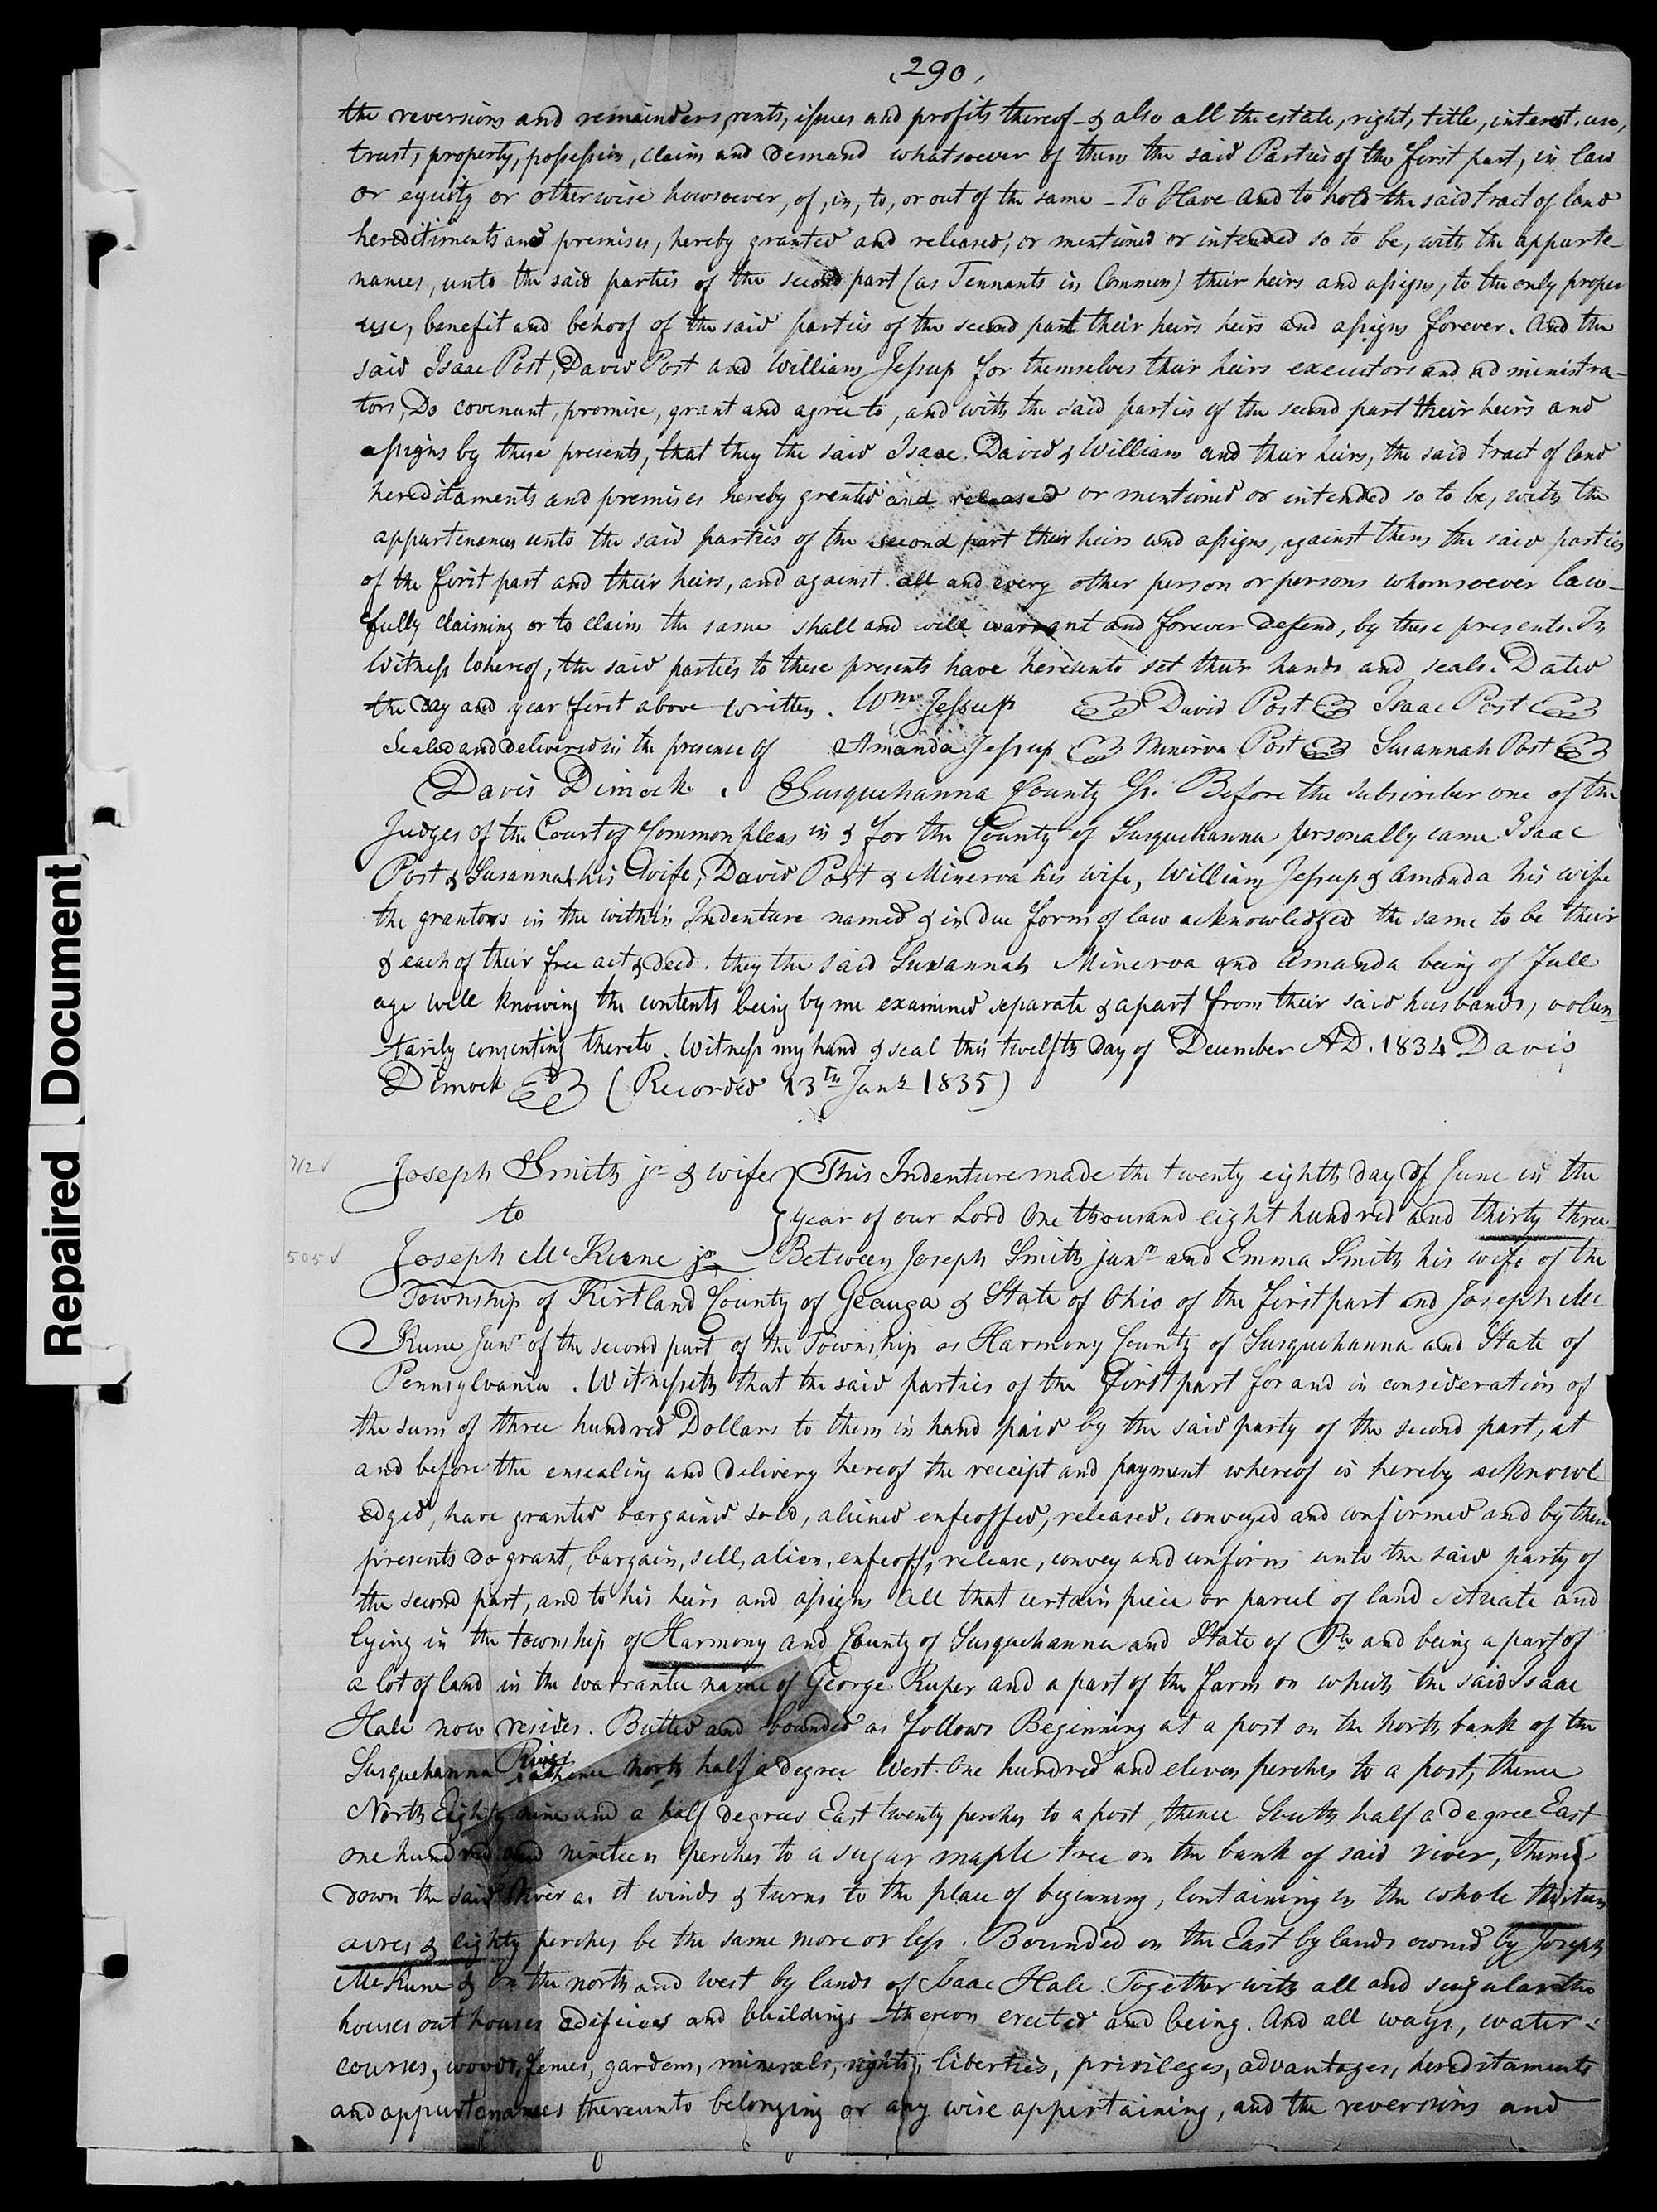 290
the reversions and remainders, rents, issues and profits thereof - & also all the estate, right, title, interest, use,
trust, property, possession, claim and demand whatsoever of them the said Parties of the first part, in law
or equity or otherwise howsoever, of, in, to, or out of the same - To Have and to hold the said tract of land
hereditiments and premises, hereby granted and released, or mentioned or intended so to be, with the apparte-
nances, unto the said parties of the second part (as Tennants in Common) their heirs and assigns, to the only proper
use, benefit and behoof of the said parties of the second part their heirs heirs and assigns forever. And the
said Isaac Post, David Post and William Jessup for themselves their heirs executors and administra-
tors, Do covenant, promise, grant and agree to, and with the said parties of the second part their heirs and
assigns by these presents, that they the said Isaac. David & William and their heirs, the said tract of land
hereditaments and premises hereby granted and released or mentioned or intended so to be, with the
appurtenances unto the said parties of the second part their heirs and assigns, against them the said parties
of the first part and their heirs, and against all and every other person or persons whomsoever law-
fully claiming or to claim the same shall and will warrant and forever defend, by these presents. In
Witness whereof, the said parties to these presents have hereunto set their hands and seals. Dated
the day and year first above written. Wm Jessup David Post Isaac Post
Sealed and delivered in the presence of Amanda Jessup Minerva Post Susannah Post
Davis Dimock. Susquehanna County Ss. Before the subscriber one of the
Judges of the Court of Common pleas in & for the County of Susquehanna personally came Isaac
Post & Susannah his wife, David Post & Minerva his wife, William Jessup & Amanda his wife
the grantors in the within Indenture named & in due form of law acknowledged the same to be their
& each of their free act & deed. they the said Susannah Minerva and Amanda being of full
age well knowing the contents being by me examined separate & apart from their said husbands, volun-
tarily consenting thereto. Witness my hand & seal this twelfth day of December AD. 1834 Davis
Dimock (Recorded 13th Jany 1835)
712 ✓ Joseph Smith jr & wife } This Indenture made the twenty eighth day of June in the
to } year of our Lord One thousand eight hundred and thirty three
505 ✓ Joseph McKune jr Between Joseph Smith junr and Emma Smith his wife of the
Township of Kirtland County of Geauga & State of Ohio of the first part and Joseph Mc
Kune Junr of the second part of the Township os Harmony County of Susquehanna and State of
Pennsylvania. Witnesseth that the said parties of the first part for and in consideration of
the sum of three hundred Dollars to them in hand paid by the said party of the second part, at
and before the ensealing and delivery hereof the receipt and payment whereof is hereby acknowl
edged, have granted bargained sold, aliened enfeoffed, released, conveyed and confirmed and by these
presents do grant, bargain, sell, alien, enfeoff, release, convey and confirm unto the said party of
the second part, and to his heirs and assigns All that certain piece or parcel of land situate and
lying in the township of Harmony and County of Susquehanna and State of Pa and being a part of
a lot of land in the warrantee name of George Ruper and a part of the farm on which the said Isaac
Hale now resides. Butted and bounded as follows Beginning at a post on the north bank of the
Susquehanna River thence north half a degree West One hundred and eleven perches to a post, thence
North Eighty nine and a half degrees East twenty perches to a post, thence South half a degree East
one hundred and nineteen perches to a sugar maple tree on the bank of said river, thence
down the said river as it winds & turns to the place of beginning, Containing in the whole thirteen
acres & eighty perches be the same more or less. Bounded on the East by lands owned by Joseph
McKune & on the north and west by lands of Isaac Hale. Together with all and singular the
houses out houses edifices and buildings thereon erected and being. And all ways, water-
courses, woods, fences, gardens, minerals, rights, liberties, privileges, advantages, hereditaments
and appurtenances thereunto belonging or any wise appertaining, and the reversions and
Repaired Document